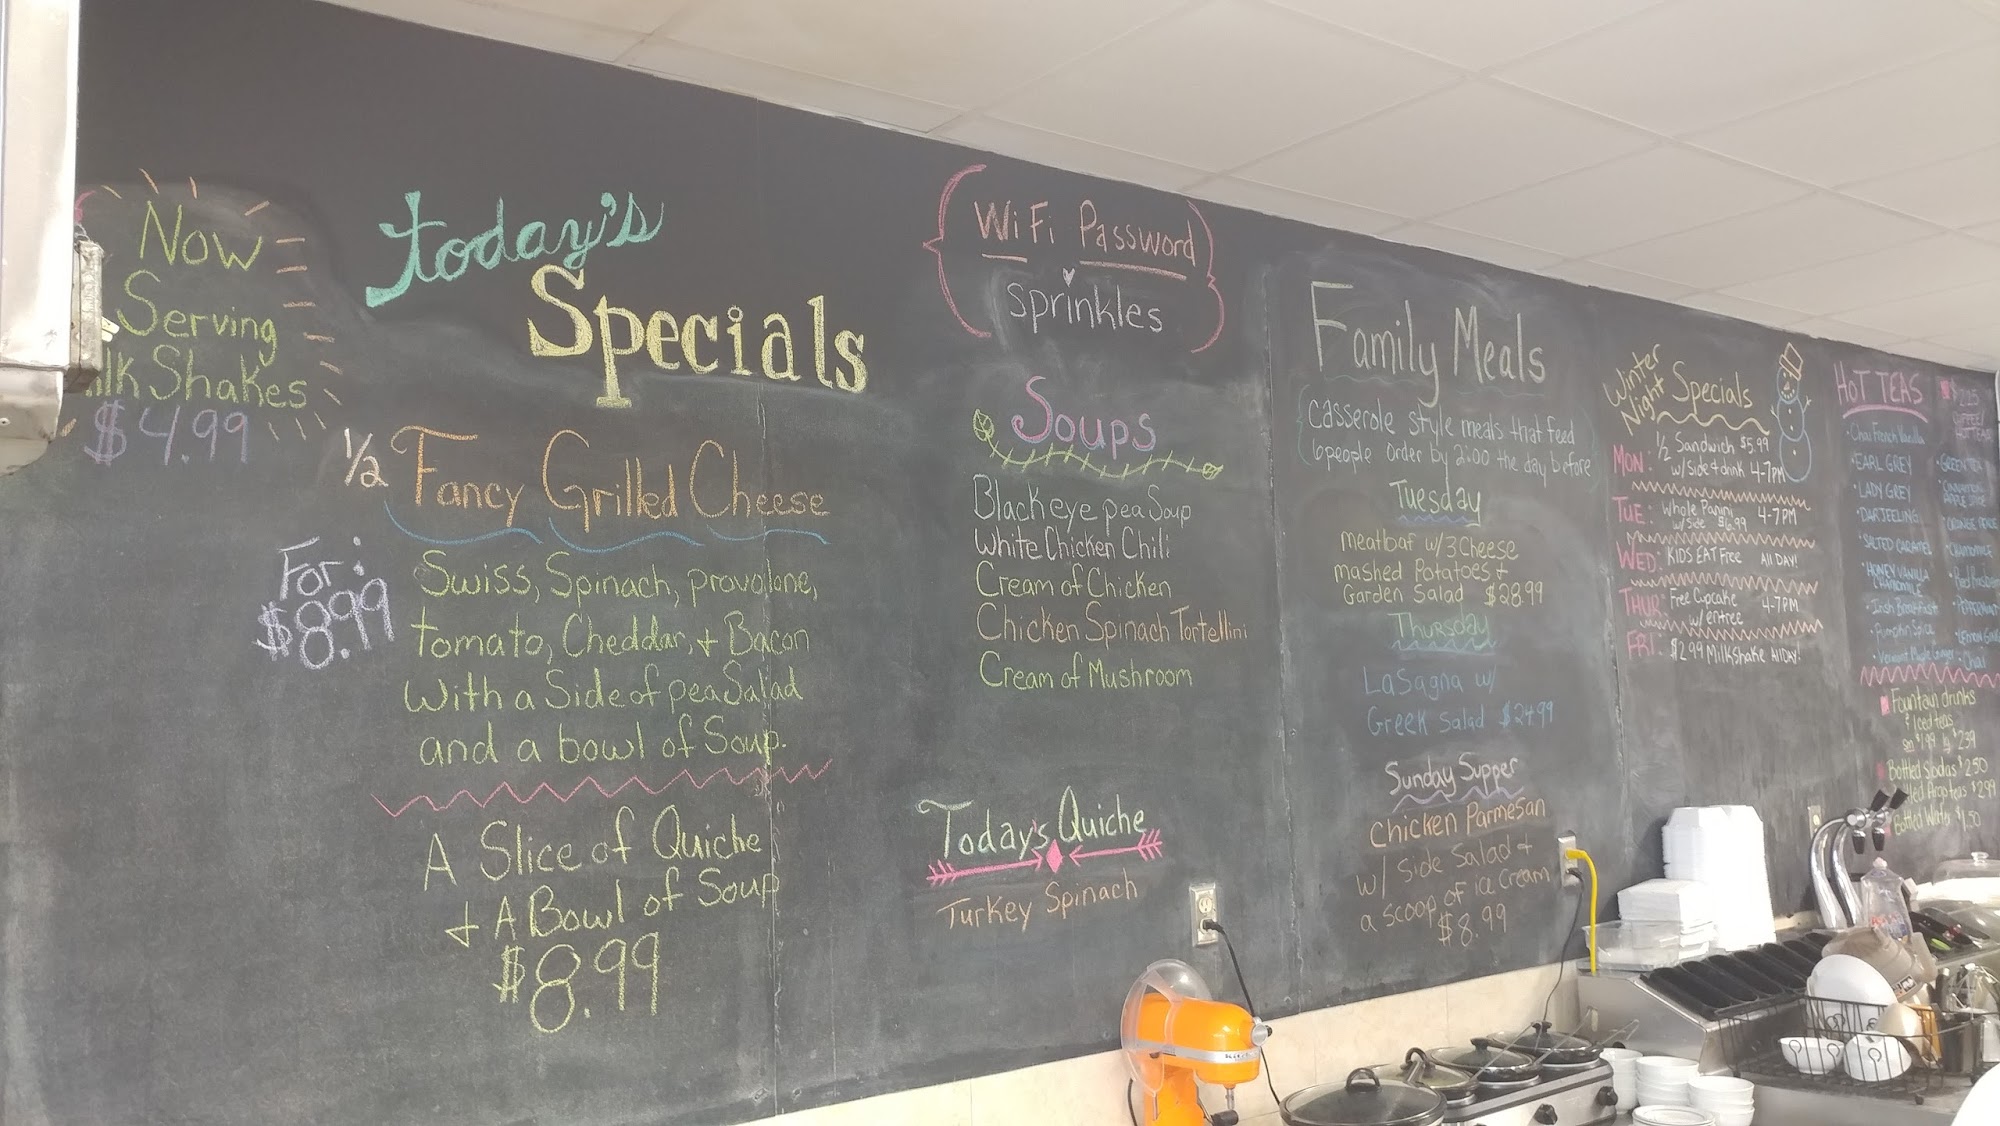 Now
Serving
Shakes
$4.99
today's
Specials
1/2 Fancy Grilled Cheese
For:
$8.99
Swiss, Spinach, provolone,
tomato, Cheddar, + Bacon
With a Side of pea Salad
and a bowl of Soup.
A Slice of Quiche
+ A Bowl of Soup
$8.99
WiFi Password
sprinkles
Soups
Blackeye pea Soup
White Chicken Chili
Cream of Chicken
Chicken Spinach Tortellini
Cream of Mushroom
Today's Quiche
Turkey Spinach
Family Meals
Casserole style meals that feed
6 people order by 2:00 the day before
Tuesday
meatloaf w/ 3 Cheese
mashed Potatoes +
Garden Salad $28.99
Thursday
LaSagna w/
Greek Salad $24.99
Sunday Supper
Chicken Parmesan
w/ Side Salad +
a scoop of ice cream
$8.99
Winter
Night Specials
MON: 1/2 Sandwich $5.99
w/ Side + drink 4-7PM
TUE: Whole Panini 4-7PM
w/ side $6.99
WED: KIDS EAT Free All DAY!
THUR: Free Cupcake 4-7PM
w/ entree
FRI: $2.99 Milkshake All DAY!
HOT TEAS
• Chai French Vanilla
• EARL GREY
• LADY GREY
• DARJEELING
• SALTED CARAMEL
• HONEY VANILLA
CHAMOMILE
• Irish Breakfast
• Pumpkin Spice
• Vermont Maple Ginger
• GREEN TEA
• CINNAMON
APPLE SPICE
• CHAMOMILE
• PEPPERMINT
• Chai
Fountain drinks
& Iced teas
sm $1.99 lg $2.39
Bottled Sodas $2.50
teas $2.99
Bottled Water $1.50